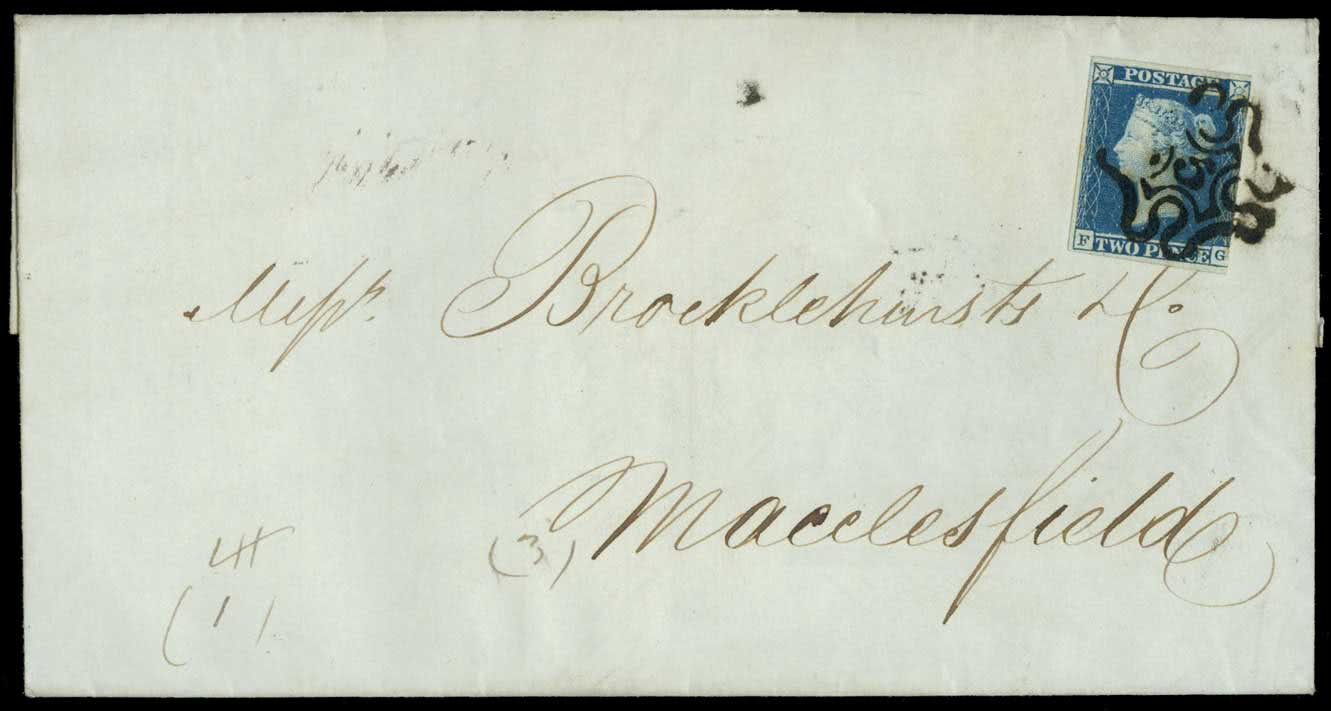 POSTAGE
TWO PENCE
F G
Messrs. Brocklehursts & Co.
(3) Macclesfield
(1)